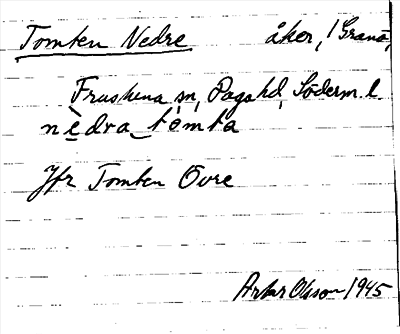 Tomten Nedre åker, 1 Granå,
Fruskena sn, Daga hd, Söderm. l.
nèdra_tòmta
Jfr Tomten Övre
Artur Olsson 1945